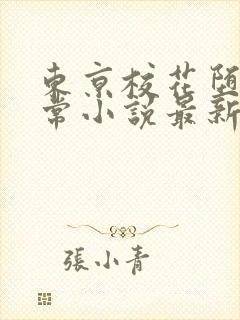 東京校花堕
常小說最新
張小青